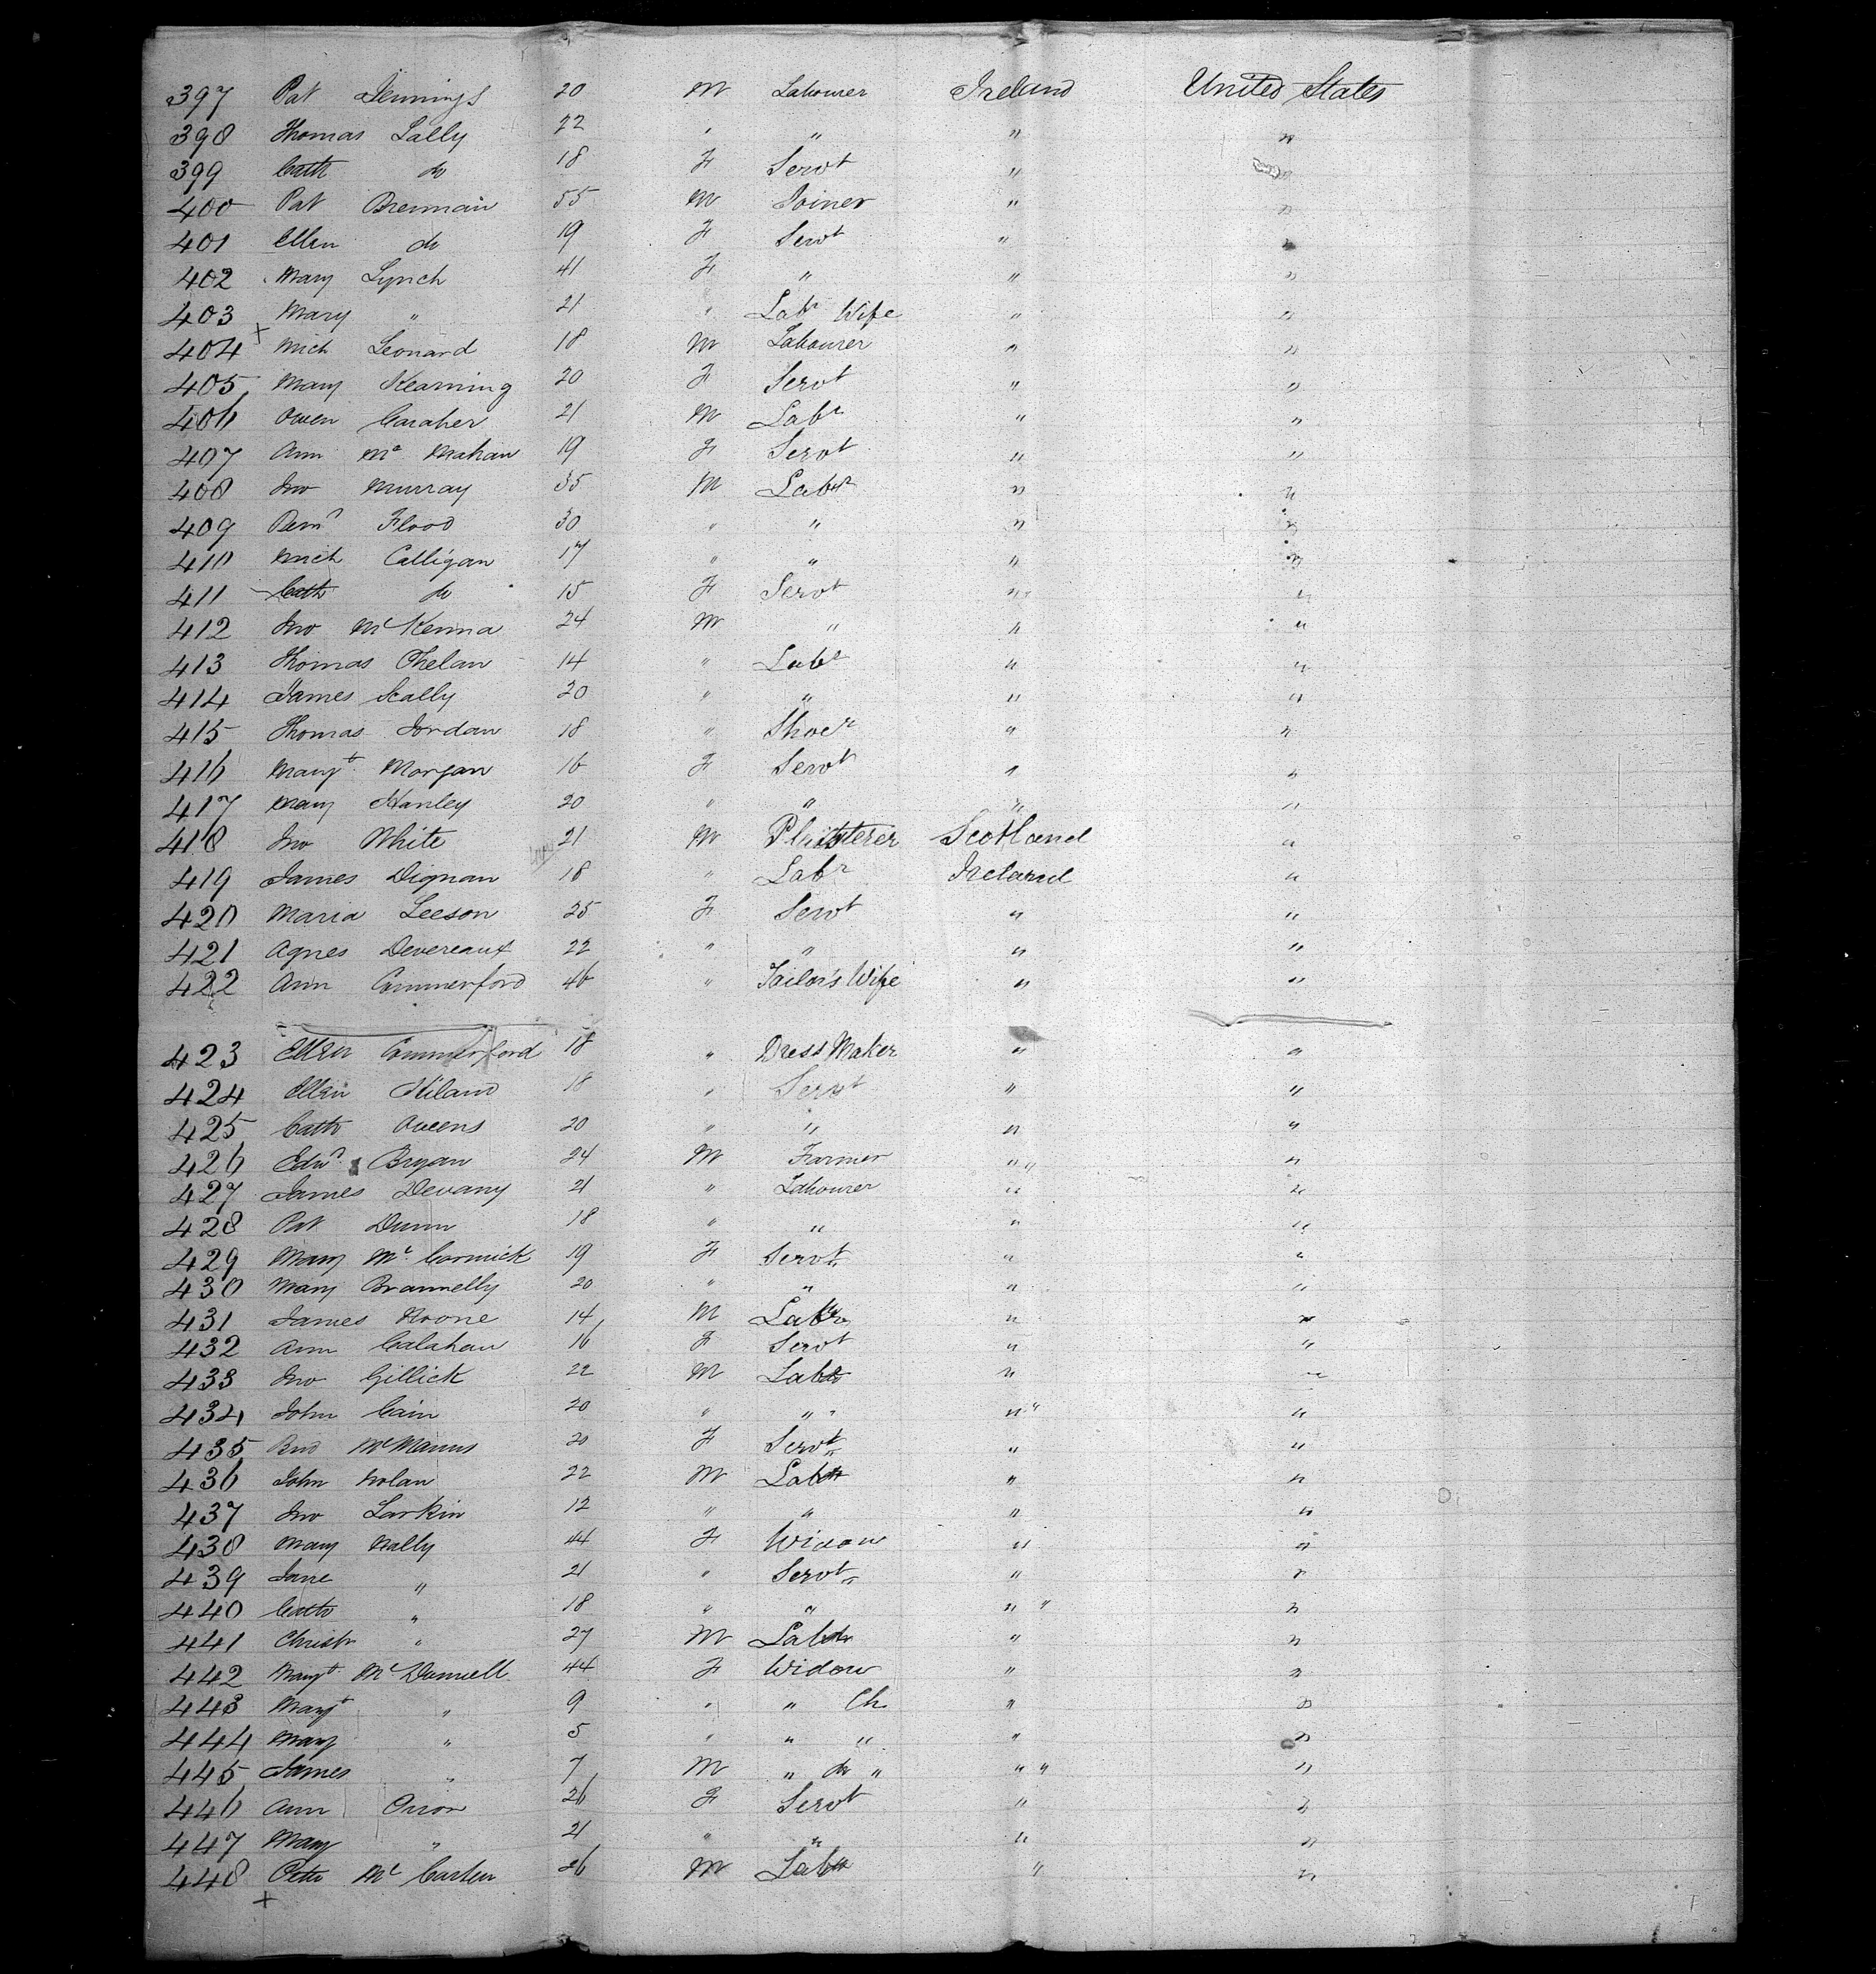 397 Pat Jennings 20 M Labourer Ireland United States
398 Thomas Lally 22 " " " "
399 Cath do 18 F Servt " "
400 Pat Brennan 55 M Joiner " "
401 Ellen do 19 F Servt " "
402 Mary Lynch 41 F " " "
403 Mary " 21 " Labr Wife " "
404 Mich Leonard 18 M Labourer " "
405 Mary Kearning 20 F Servt " "
406 Owen Caraher 21 M Labr " "
407 Ann Mc Mahan 19 F Servt " "
408 Jno Murray 35 M Labr " "
409 Flood 30 " " " "
410 Mich Calligan 17 " " " "
411 Cath do 15 F Servt " "
412 Jno McKenna 24 M " " "
413 Thomas Phelan 14 " Labr " "
414 James Scally 20 " " " "
415 Thomas Jordan 18 " Shoer " "
416 Margt Morgan 16 F Servt " "
417 Mary Hanley 20 " " " "
418 Jno White 21 M Plasterer Scotland "
419 James Dignan 18 " Labr Ireland "
420 Maria Leeson 25 F Servt " "
421 Agnes Devereaux 22 " " " "
422 Ann Commerford 46 " Tailor's Wife " "
423 Ellen Commerford 18 " Dress Maker " "
424 Ellen Kiland 18 " Servt " "
425 Cath Owens 20 " " " "
426 Edwd Bryan 24 M Farmer " "
427 James Devany 21 " Labourer " "
428 Pat Dunn 18 " " " "
429 Mary Mc Cormick 19 F Servt " "
430 Mary Brannelly 20 " " " "
431 James Noone 14 M Labr " "
432 Ann Calahan 16 F Servt " "
433 Jno Gillick 22 M Labr " "
434 John Cain 20 " " " "
435 Brid McManus 20 F Servt " "
436 John Nolan 22 M Labr " "
437 Jno Larkin 12 " " " "
438 Mary Nally 44 F Widow " "
439 Jane " 21 " Servt " "
440 Cath " 18 " " " "
441 Christr " 27 M Labr " "
442 Margt McDonnell 44 F Widow " "
443 Margt " 9 " " Ch " "
444 Mary " 5 " " " " "
445 James " 7 M " do " " "
446 Ann 26 F Servt " "
447 Mary " 21 " " " "
448 Peter Mc 26 M Labr " "